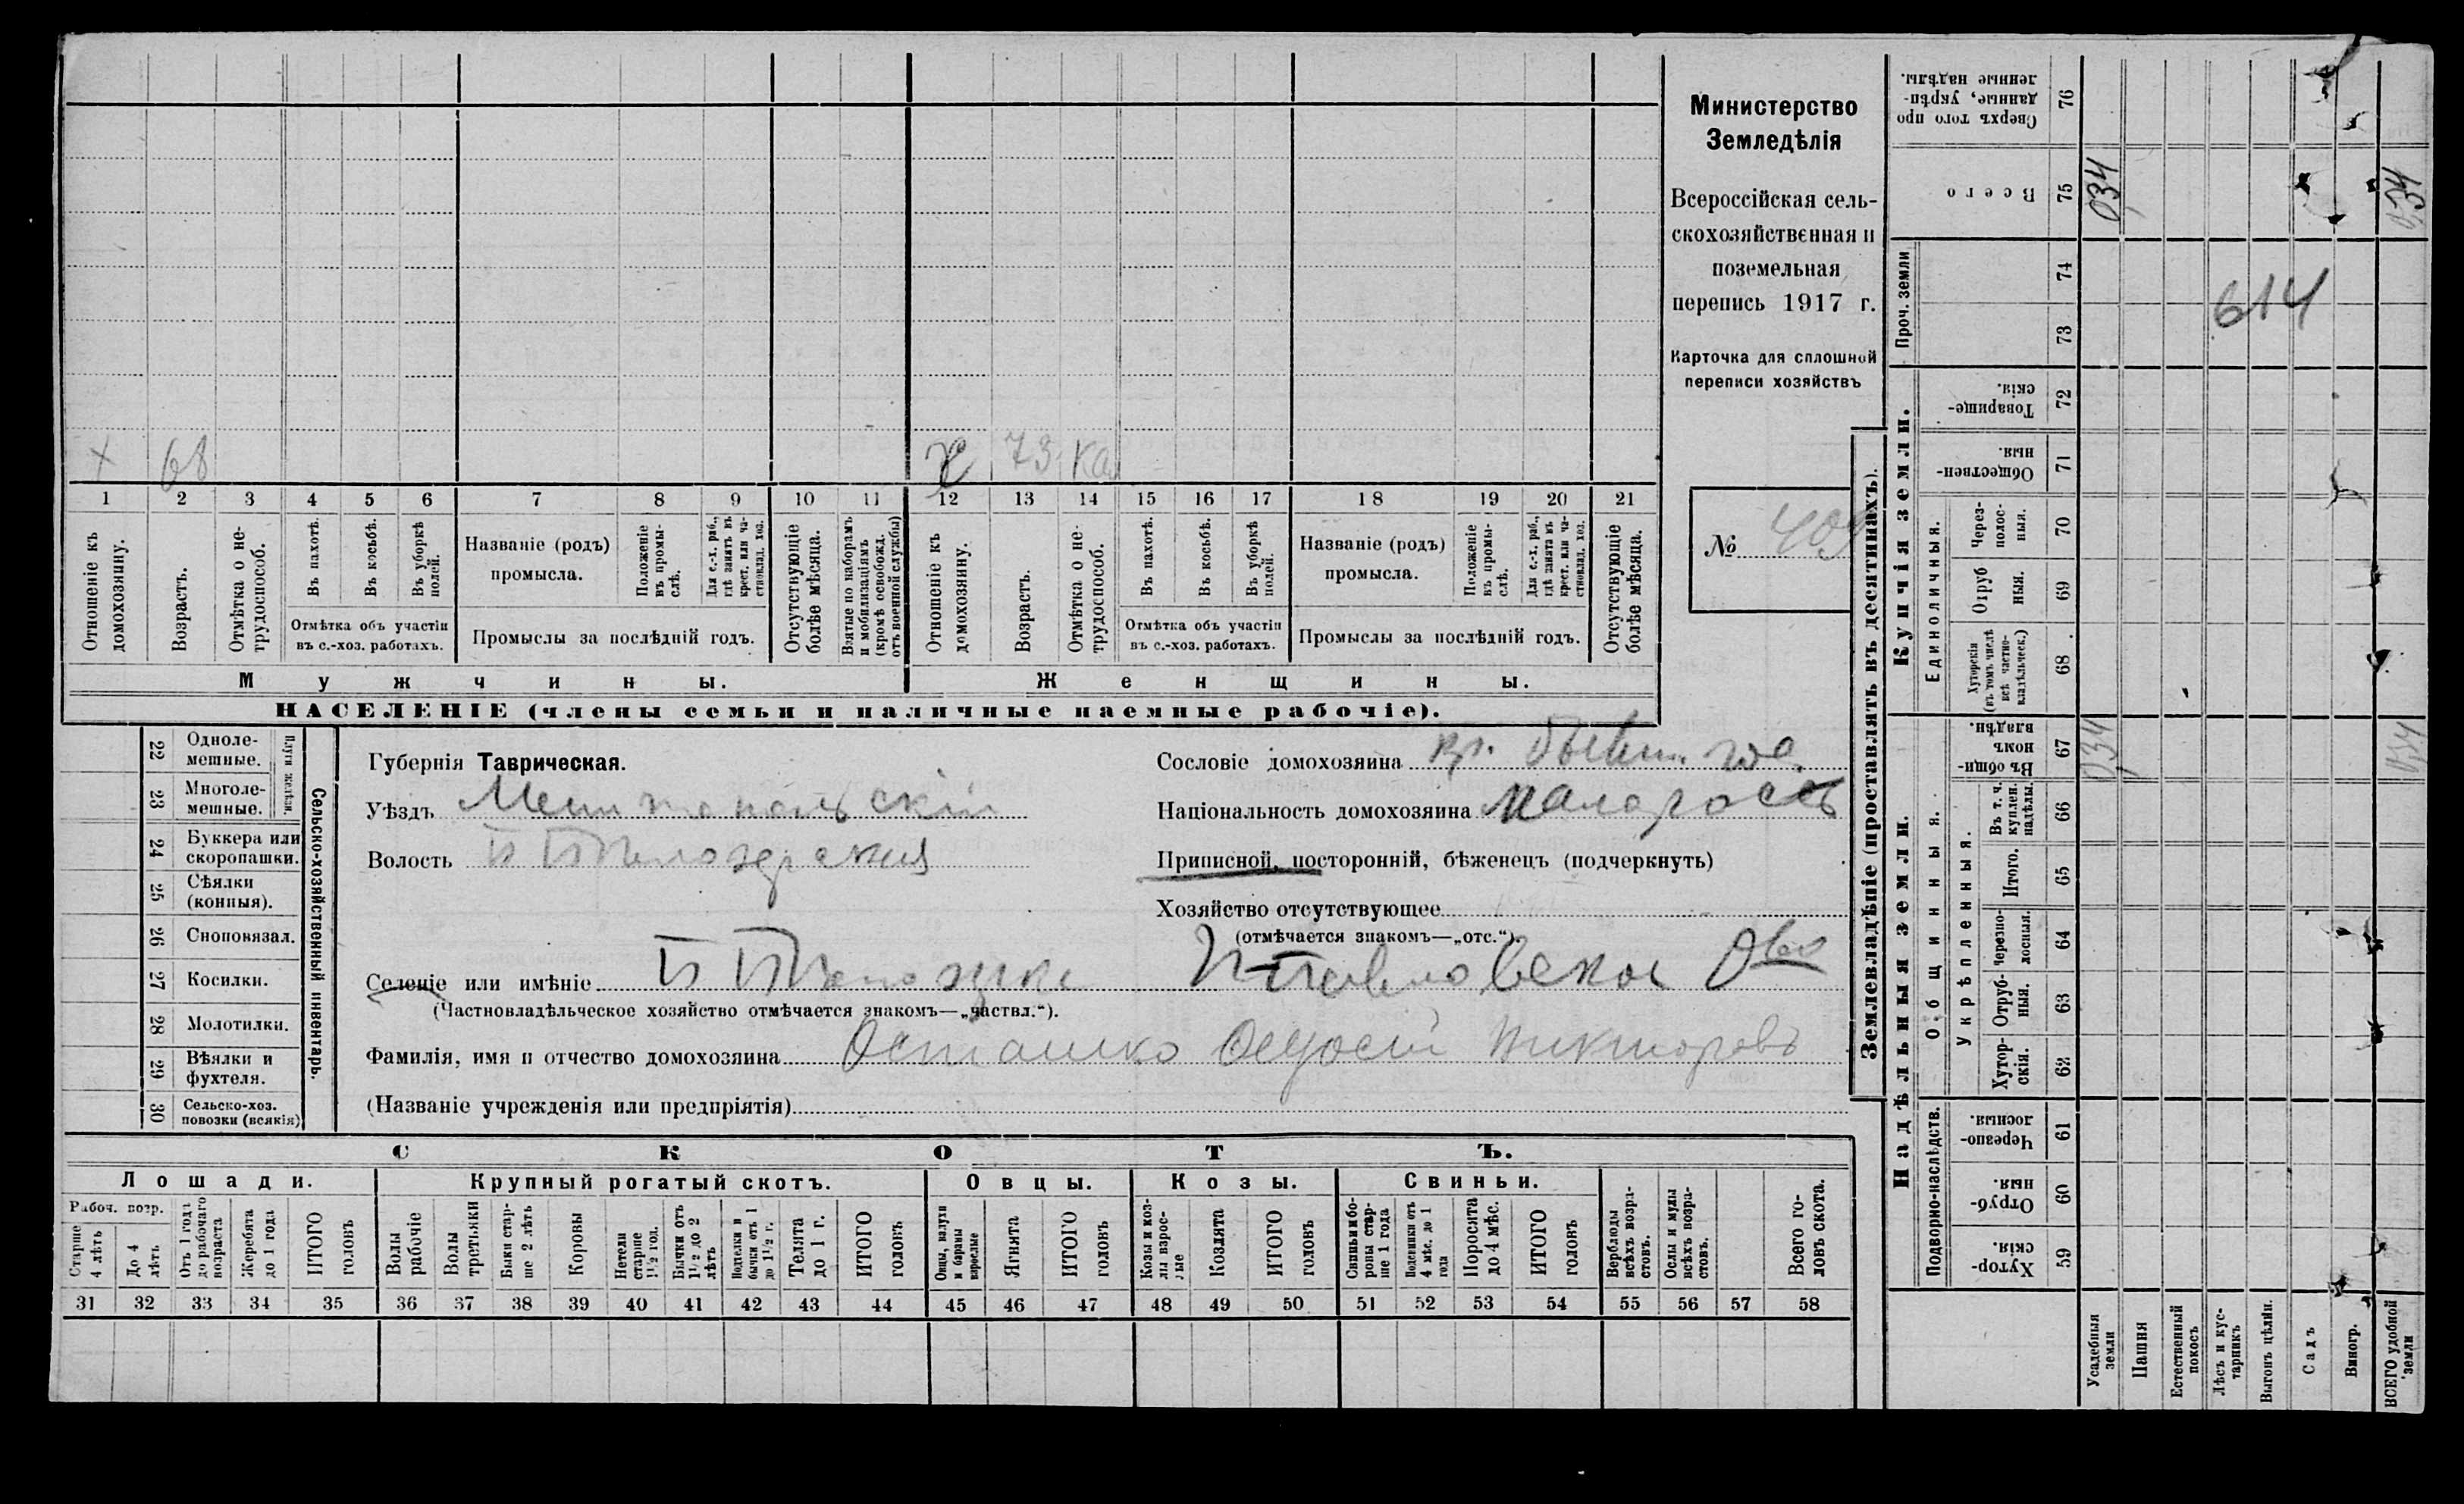 + 68 х 73 кал
1 2 3 4 5 6 7 8 9 10 11 12 13 14 15 16 17 18 19 20 21
Отношеніе къ домохозяину.
Возрастъ.
Отмѣтка о нетрудоспособ.
Въ пахотѣ.
Въ косьбѣ.
Въ уборкѣ полей.
Отмѣтка объ участіи
въ с.-хоз. работахъ.
Названіе (родъ)
промысла.
Положеніе въ промыслѣ.
Для с.-х. раб., гдѣ занятъ въ крест. или частновлад. хоз.
Промыслы за послѣдній годъ.
Отсутствующіе болѣе мѣсяца.
Взятые по наборамъ и мобилизаціямъ (кромѣ освобожд. отъ военной службы)
Отношеніе къ домохозяину.
Возрастъ.
Отмѣтка о нетрудоспособ.
Въ пахотѣ.
Въ косьбѣ.
Въ уборкѣ полей.
Отмѣтка объ участіи
въ с.-хоз. работахъ.
Названіе (родъ)
промысла.
Положеніе въ промыслѣ.
Для с.-х. раб., гдѣ занята въ крест. или частновлад. хоз.
Промыслы за послѣдній годъ.
Отсутствующіе болѣе мѣсяца.
Мужчины. Женщины.
НАСЕЛЕНІЕ (члены семьи и наличные наемные рабочіе).
Министерство
Земледѣлія
Всероссійская сель-
скохозяйственная и
поземельная
перепись 1917 г.
Карточка для сплошной
переписи хозяйствъ
№ 409
22 Одноле-
мешные.
23 Многоле-
мешные.
Плуги желѣзн.
24 Буккера или
скоропашки.
25 Сѣялки
(конныя).
26 Сноповязал.
27 Косилки.
28 Молотилки.
29 Вѣялки и
фухтеля.
30 Сельско-хоз.
повозки (всякія)
Сельско-хозяйственный инвентарь.
Губернія Таврическая.
Уѣздъ Мелитопольскій
Волость Б Бѣлозерская
Сословіе домохозяина кр.
Національность домохозяина малоросъ
Приписной, посторонній, бѣженецъ (подчеркнуть)
Хозяйство отсутствующее
(отмѣчается знакомъ—„отс.“).
Селеніе или имѣніе Б Бѣлозерка Павловское О-во
(Частновладѣльческое хозяйство отмѣчается знакомъ—„частвл.“).
Фамилія, имя и отчество домохозяина Осташко Федосій Викторовъ
(Названіе учрежденія или предпріятія)
СКОТЪ.
Лошади. Крупный рогатый скотъ. Овцы. Козы. Свиньи.
Рабоч. возр.
Старше 4 лѣтъ
До 4 лѣтъ
Отъ 1 года до рабочаго возраста
Жеребята до 1 года
ИТОГО головъ
Волы рабочіе
Волы третьяки
Быки старше 2 лѣтъ
Коровы
Нетели старше 1½ год.
Бычки отъ 1½ до 2 лѣтъ
Подтелки и бычки отъ 1 до 1½ г.
Телята до 1 г.
ИТОГО головъ
Овцы, валухи и бараны взрослые
Ягнята
ИТОГО головъ
Козы и козлы взрослые
Козлята
ИТОГО головъ
Свиньи и боровы старше 1 года
Подсвинки отъ 4 мѣс. до 1 года
Поросята до 4 мѣс.
ИТОГО головъ
Верблюды всѣхъ возрастовъ.
Ослы и мулы всѣхъ возрастовъ.
Всего головъ скота.
31 32 33 34 35 36 37 38 39 40 41 42 43 44 45 46 47 48 49 50 51 52 53 54 55 56 57 58
Землевладѣніе (проставлять въ десятинахъ).
Купчія земли.
Надѣльныя земли.
Сверхъ того проданные, укрѣпленные надѣлы. 76
Всего 75 034 034
Проч. земли 74 73
614
Товарищескія. 72
Общественныя. 71
Единоличныя.
Черезполосныя. 70
Отрубныя. 69
Хуторскія (въ томъ числѣ всѣ частновладѣльческ.) 68
Общинныя.
Въ общинномъ владѣн. 67 034 034
Укрѣпленныя.
Въ т. ч. куплен. надѣлы. 66
Итого. 65
Черезполосныя. 64
Отрубныя. 63
Хуторскія. 62
Подворно-наслѣдств.
Черезполосныя. 61
Отрубныя. 60
Хуторскія. 59
Усадебныя земли
Пашня
Естественный покосъ
Лѣсъ и кустарникъ
Выгонъ цѣлин.
Садъ
Виногр.
ВСЕГО удобной земли